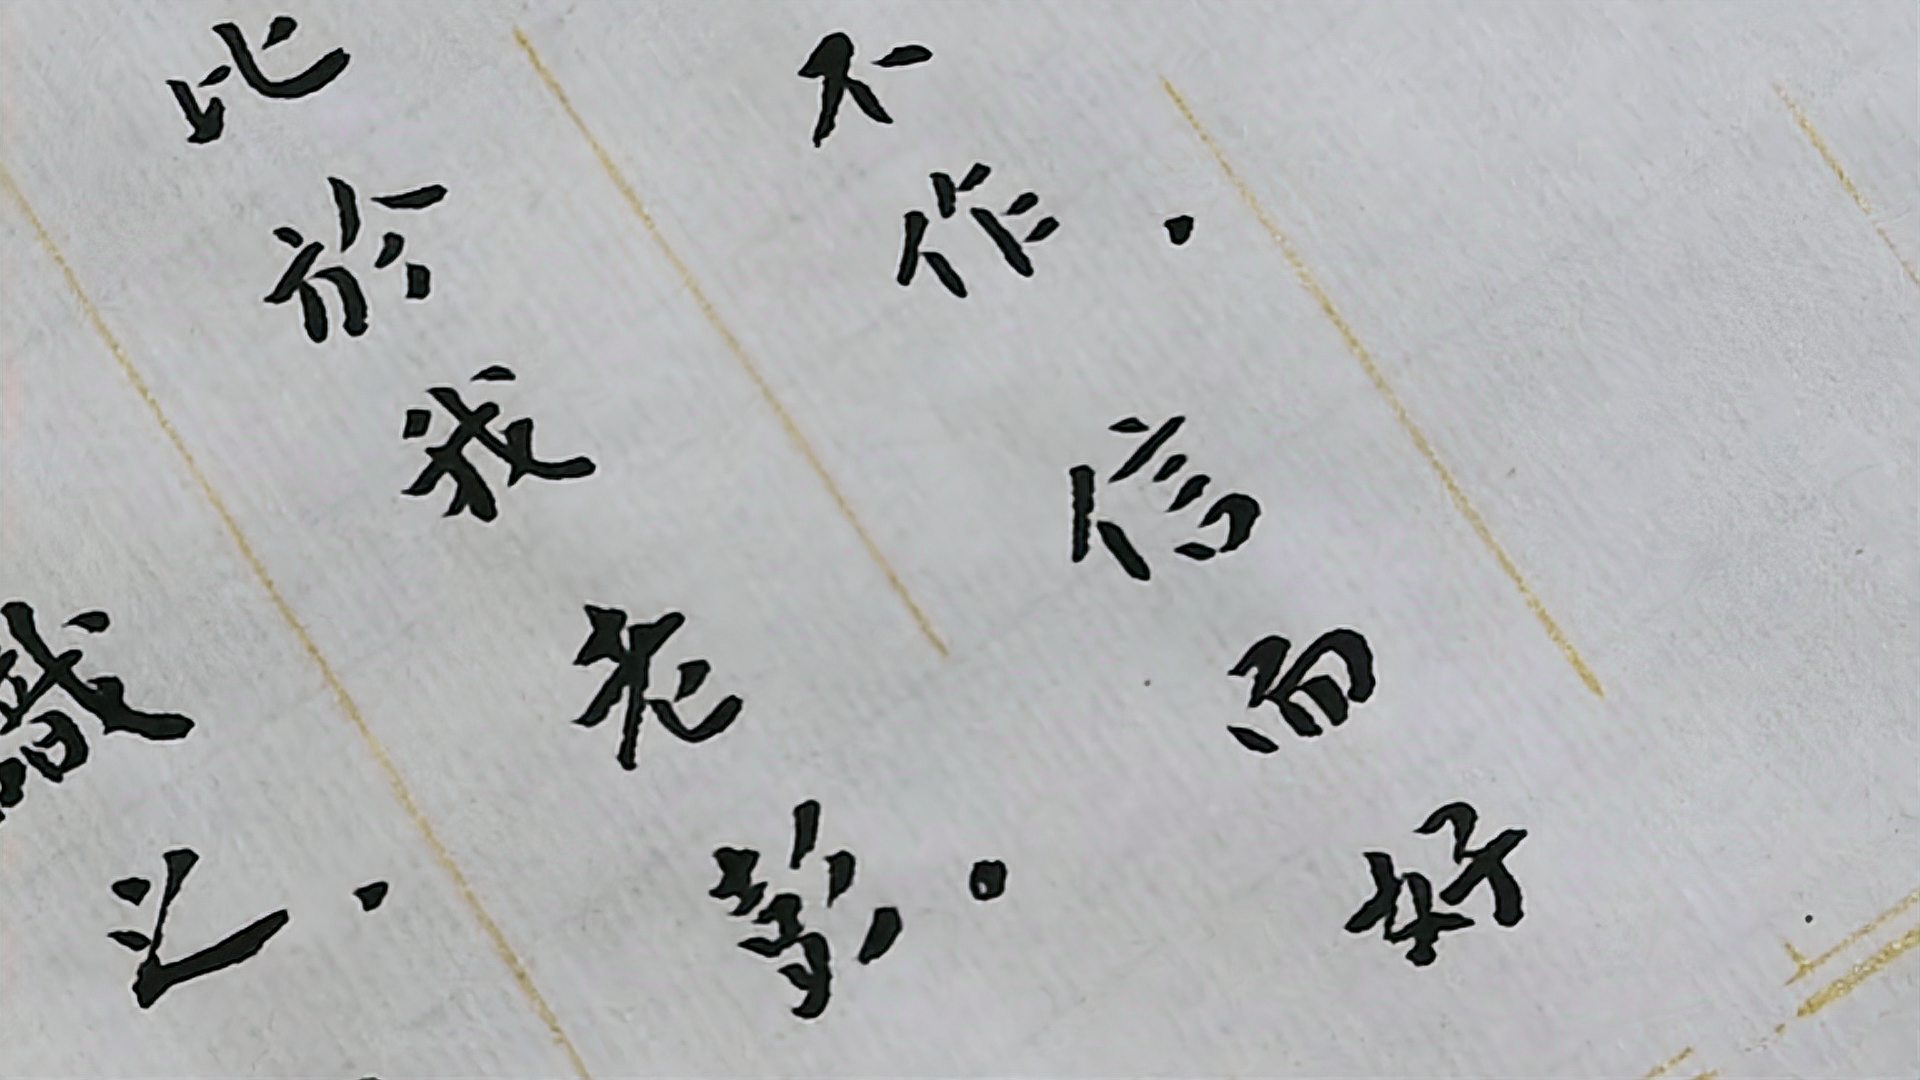 不作.信而好
比於我老彭.
識之.